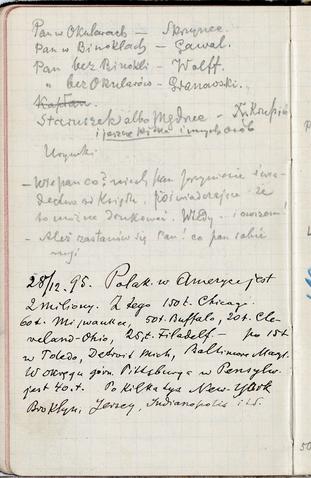 Pan w Okularach — Skrzynec
Pan w Binoklach — Gawal.
Pan bez Binokli — Wolff.
" bez Okularów — Granowski.
Kapłan.
Staruszek albo Mędrzec — X. Krupiń
i jeszcze kilka innych osób
Urywki
— Wie pan co? niech pan przyniesie świa-
dectwo od Księdza, poświadczające że
to można drukować. Wtedy — i owszem!
— Ależ zastanów się Pan! co pan robi
28/12. 95. Polak. w Ameryce jest
2 miliony. Z tego 150 t. Chicago.
60 t. Milwaukee, 50 t. Buffalo, 20 t. Cle-
veland-Ohio, 25 t. Filadelf — po 15 t
w Toledo, Detroit Mich, Baltimore Maryl.
W okręgu górn. Pittsburga w Pensylw.
jest 40. t. Po kilka tys New-York
Brooklyn, Jersey, Indianopolis itd.